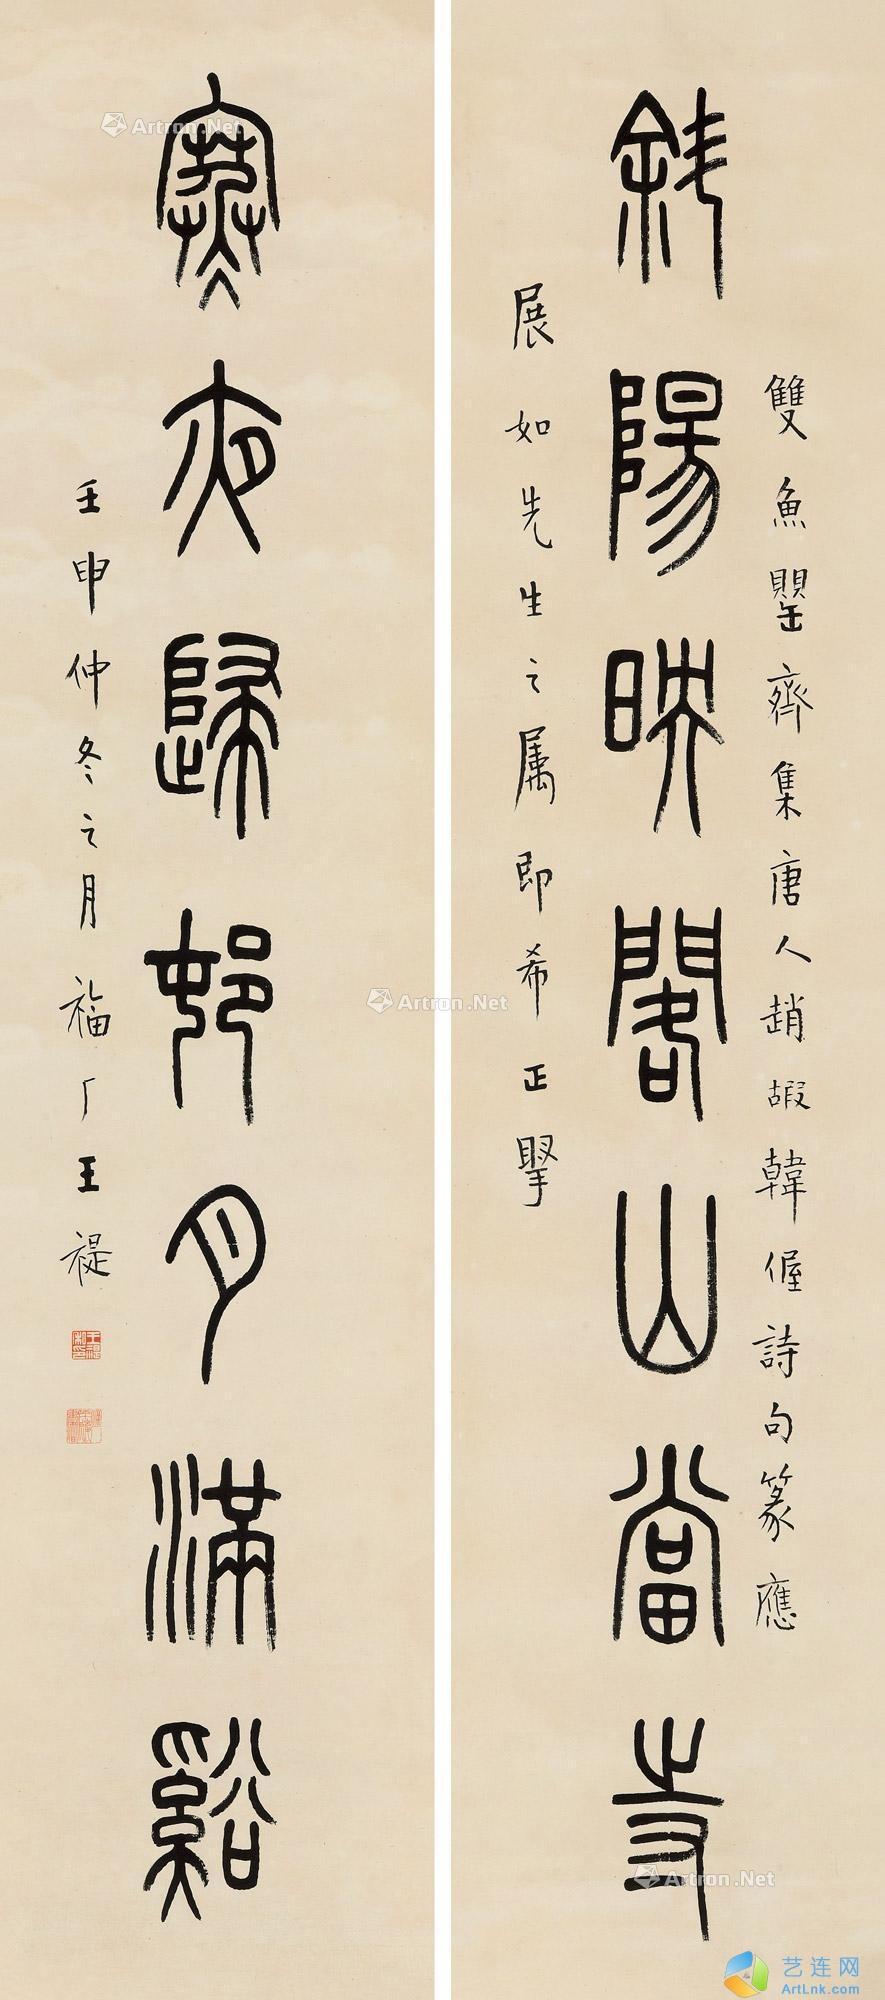 雙魚罌齊集唐人趙嘏韓偓詩句篆應
斜陽映閣山當寺
展如先生之屬即希正掔
寒夜歸邨月滿谿
壬申仲冬之月福厂王禔
王禔私印
Artron.Net
Artron.Net
Artron.Net
艺连网
ArtLnk.com